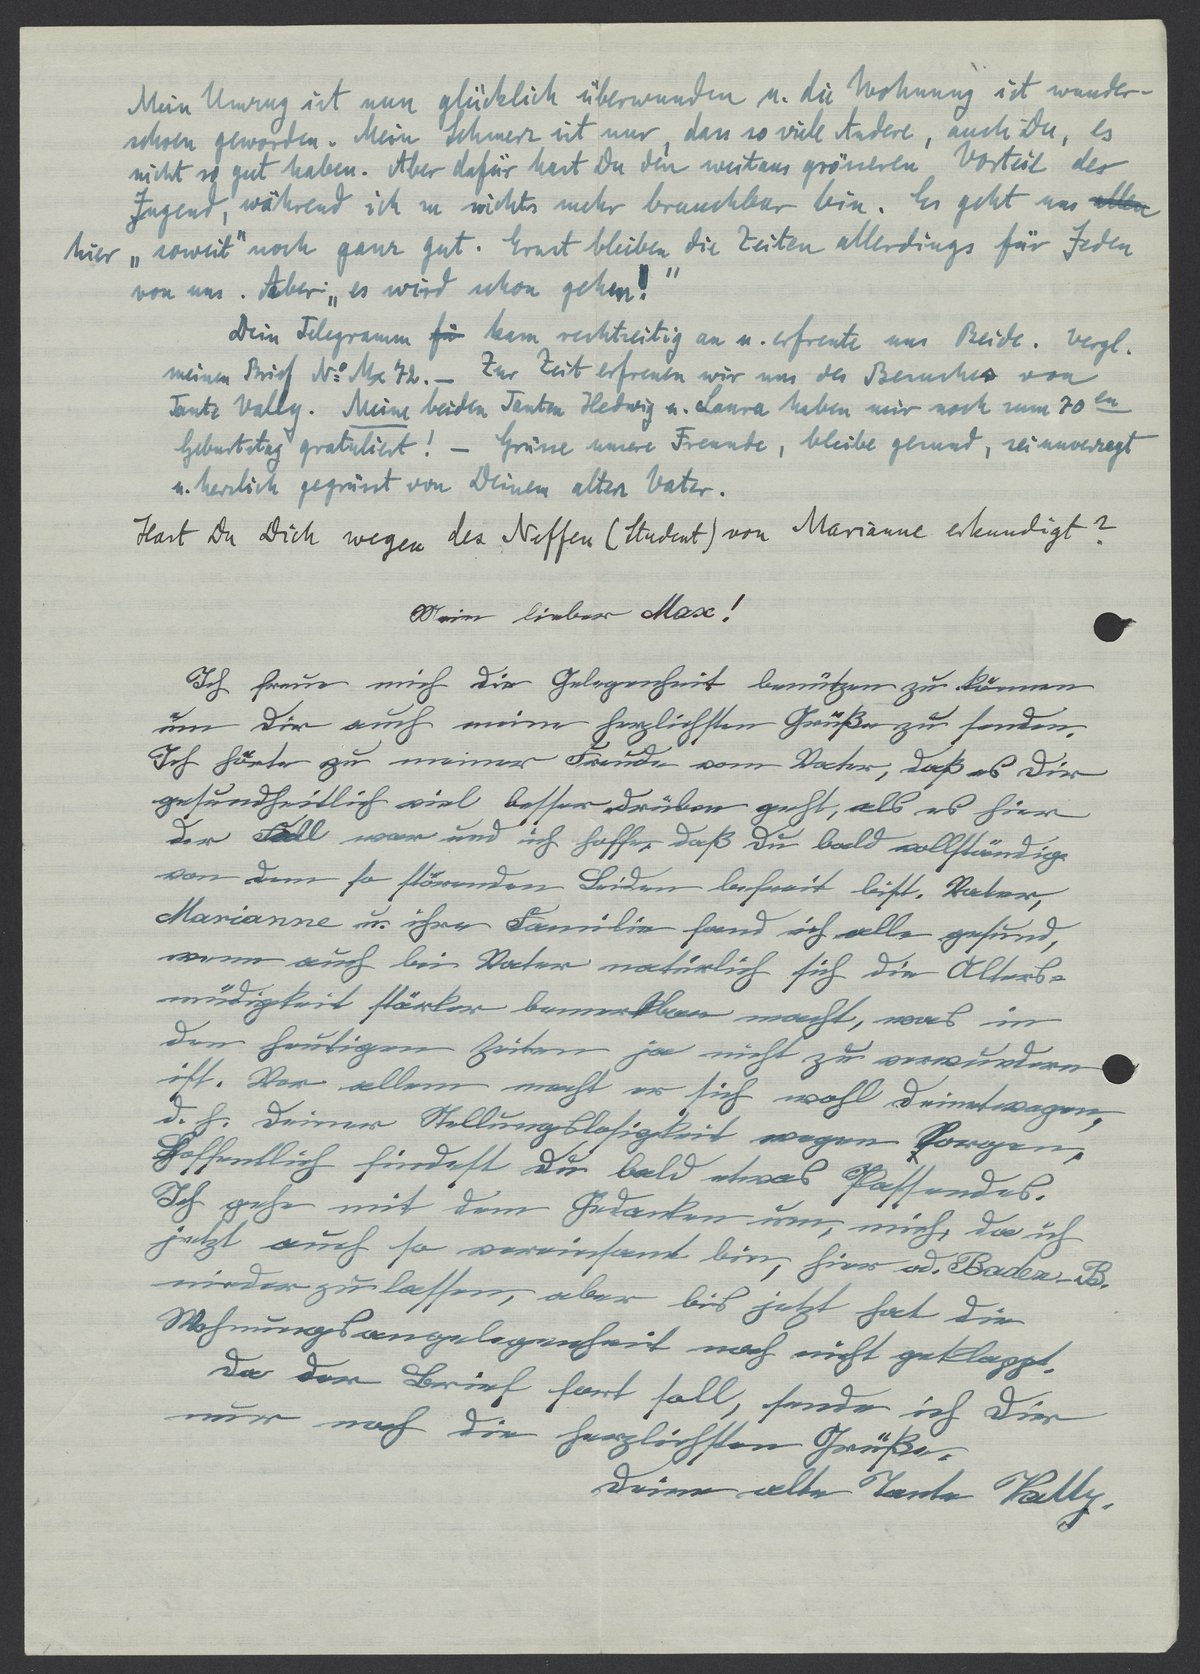 Mein Umzug ist nun glücklich überwunden u. die Wohnung ist wunder-
schoen geworden. Mein Schmerz ist nur, dass so viele Andere, auch Du, es
nicht so gut haben. Aber dafür hast Du den weitaus grösseren Vorteil der
Jugend, während ich zu nichts mehr brauchbar bin. Es geht uns allen
hier „soweit" noch ganz gut. Ernst bleiben die Zeiten allerdings für Jeden
von uns. Aber: „es wird schon gehen!"
Dein Telegramm fü kam rechtzeitig an u. erfreute uns Beide. Vergl.
meinen Brief No Mx 72. – Zur Zeit erfreuen wir uns des Besuches von
Tante Vally. Meine beiden Tanten Hedwig u. Laura haben mir noch zum 70en
Geburtstag gratuliert! – Grüsse unsere Freunde, bleibe gesund, sei unverzagt
u. herzlich gegrüsst von Deinem alten Vater.
Hast Du Dich wegen des Neffen (Student) von Marianne erkundigt?
Mein lieber Max!
Ich freue mich die Gelegenheit benützen zu können
um Dir auch meine herzlichsten Grüße zu senden.
Ich hörte zu meiner Freude vom Vater, daß es Dir
gesundheitlich viel besser drüben geht, als es hier
der Fall war und ich hoffe, daß Du bald vollständig
von dem so störenden Leiden befreit bist. Vater,
Marianne u. ihre Familie fand ich alle gesund,
wenn auch bei Vater natürlich sich die Alters-
müdigkeit stärker bemerkbar macht, was in
den heutigen Zeiten ja nicht zu verwundern
ist. Vor allem macht er sich wohl Deinetwegen,
d. h. Deiner Stellungslosigkeit wegen Sorgen,
Hoffentlich findest Du bald etwas Passendes.
Ich gehe mit dem Gedanken um, mich, da ich
jetzt auch so vereinsamt bin, hier od. Baden-B.
niederzulassen, aber bis jetzt hat die
Wohnungsangelegenheit noch nicht geklappt.
Da der Brief fort soll, sende ich Dir
nur noch die herzlichsten Grüße.
Deine alte Tante Vally.